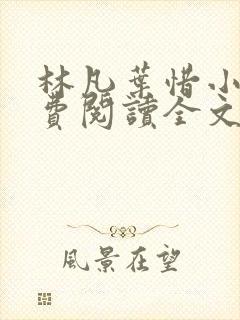 林凡葉惜小
費閱讀全文
風景在望